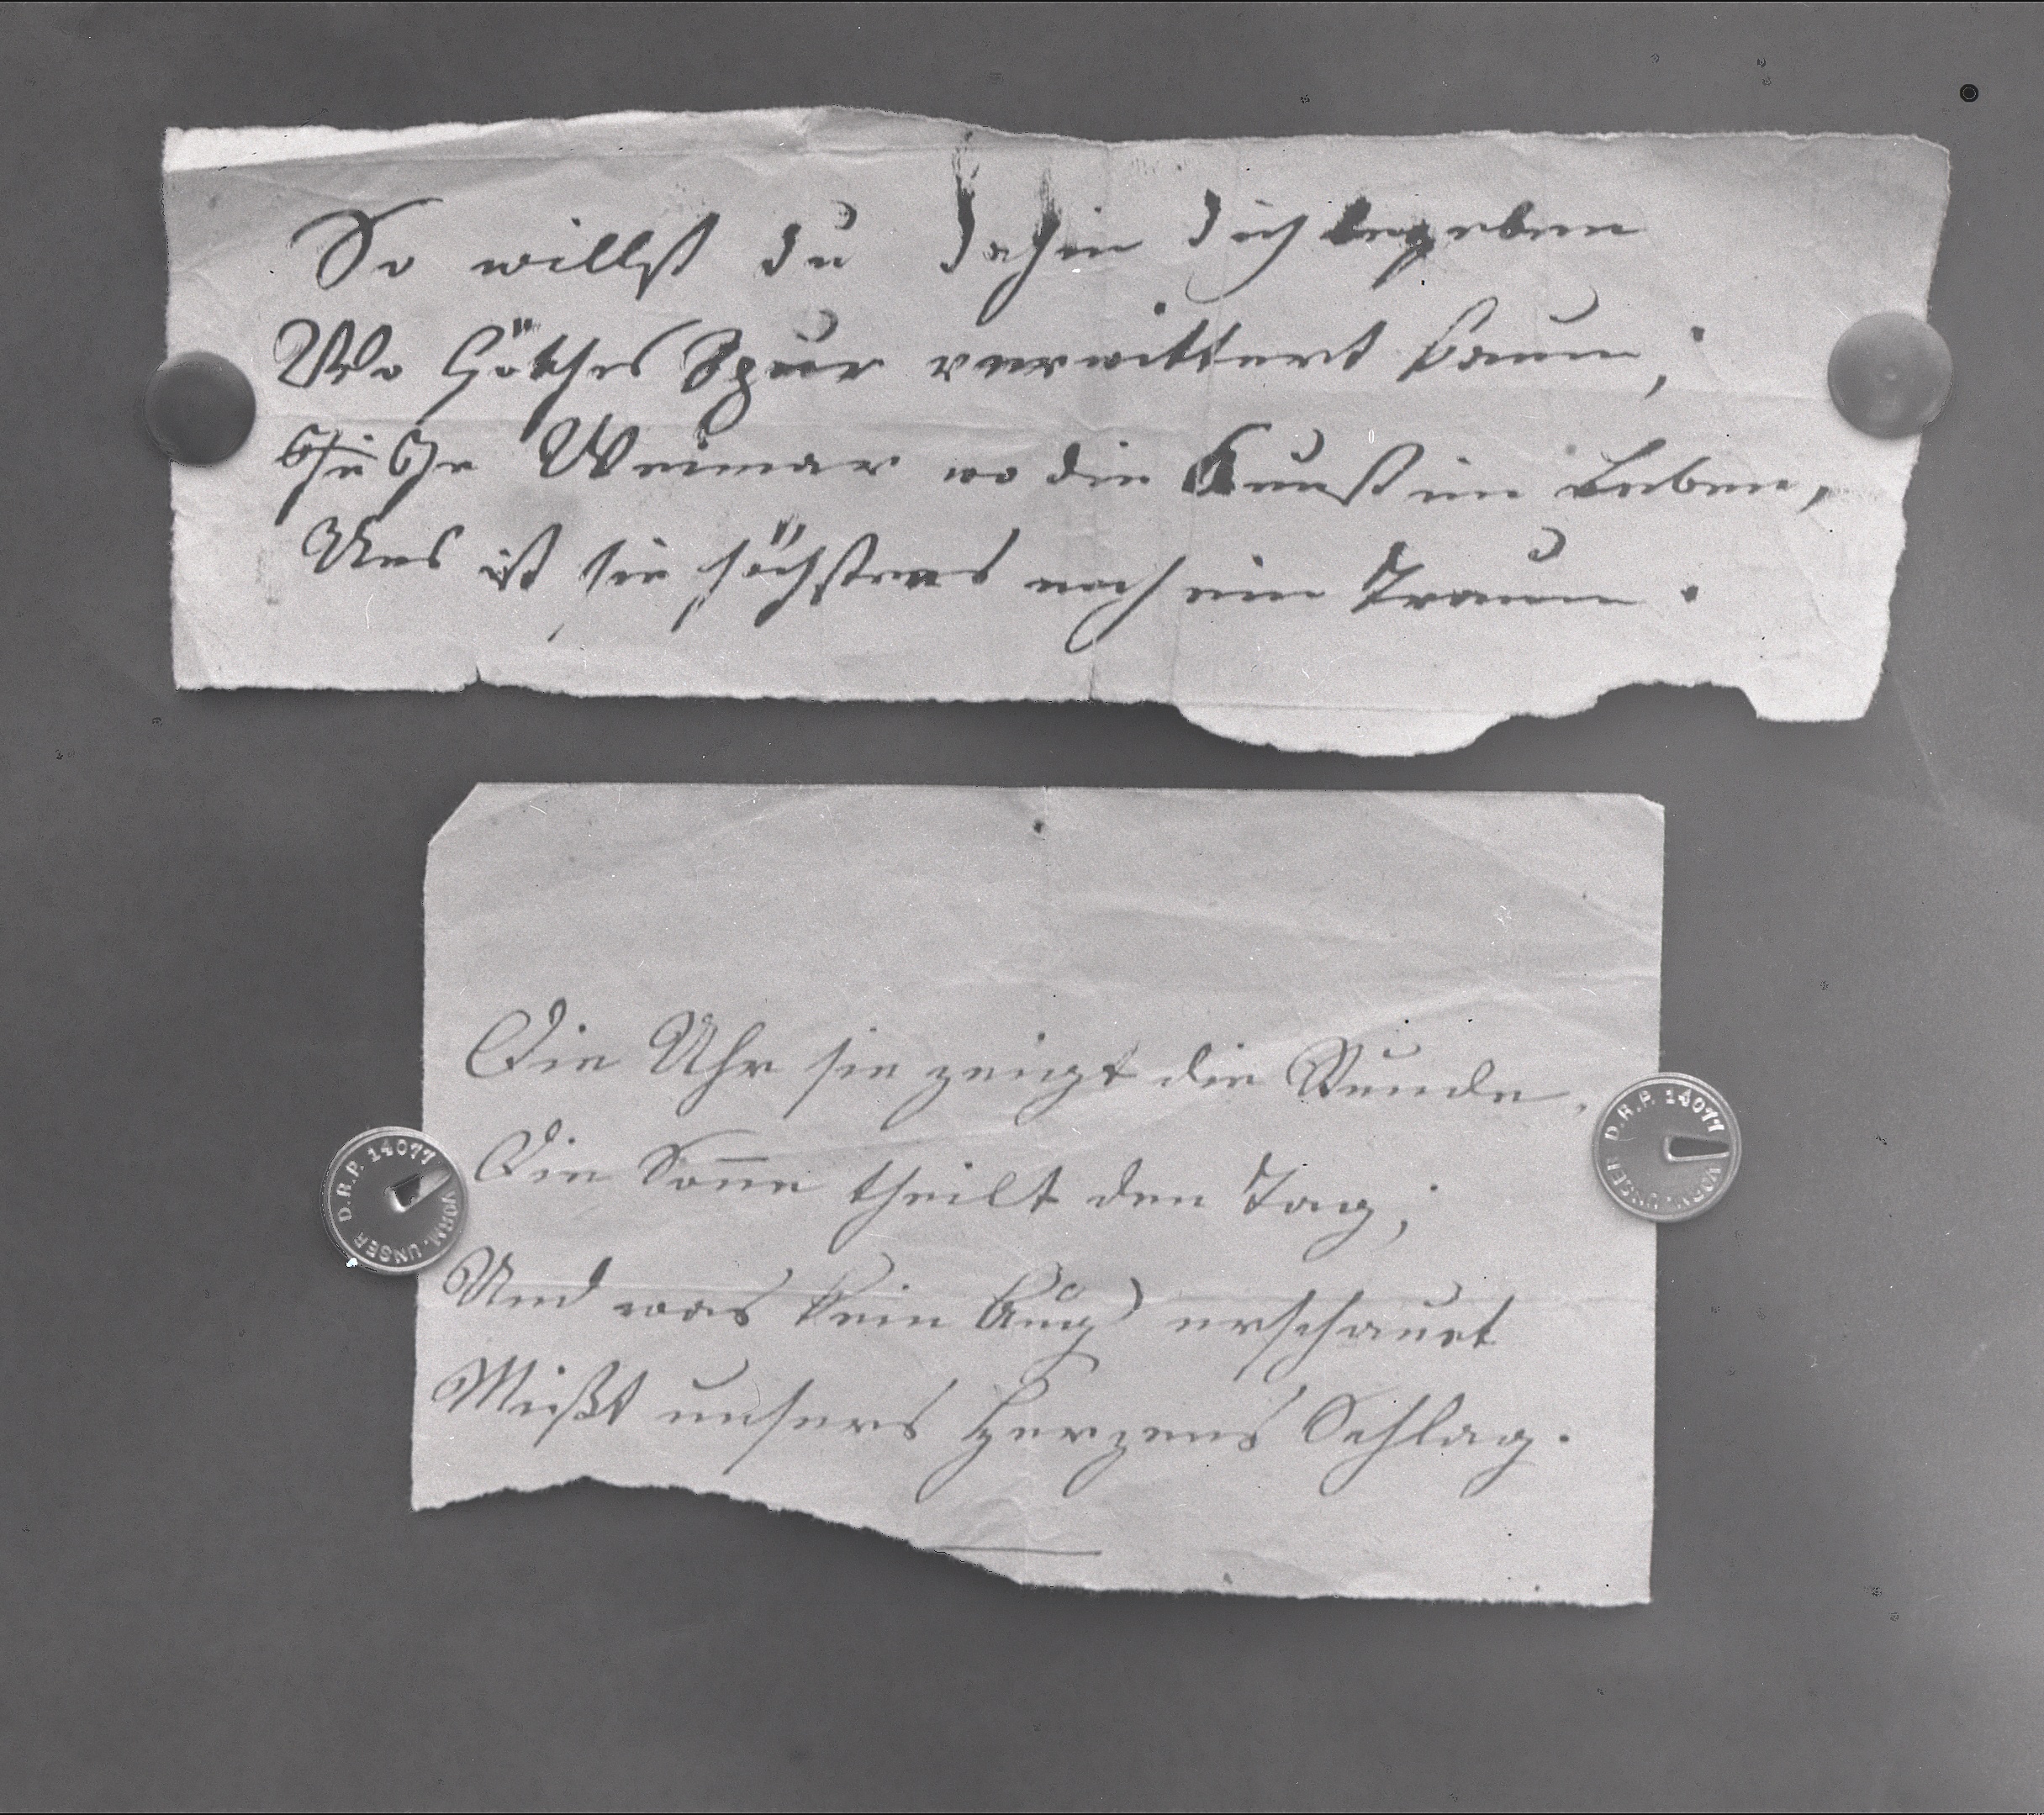 So willst du dahin dich begeben
Wo Göthes Spur verwittert kaum;
Gehe Weimar wo die Kunst im Leben,
Uns ist sie höchstens noch ein Traum.
Die Uhr sie zeigt die Stunde,
Die Sonne theilt den Tag;
Und was kein Aug erschauet
Mißt unsers Herzens Schlag.
D.R.P. 14077
VORM. UNGER
D.R.P. 14077
VORM. UNGER